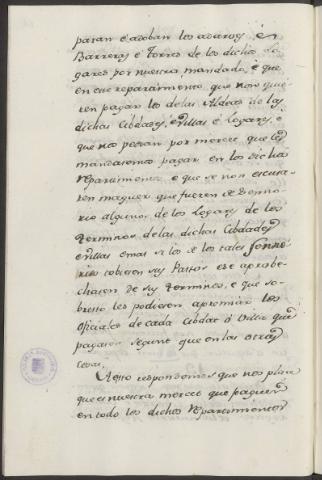 paran é acaban los adarves, é
Barreras é Torres de los dichos Lo-
gares por nuestro mandado, é que
en ese repartimiento, que non quie-
ren pagar los de las Aldeas de las
dichas Cibdades, é villas é Logares, é
que nos pedian por merced, que les
mandasemos pagar en los dichos
repartimientos é que se non escusa-
sen maguer que fuesen de Senno-
rio algunos de los Logares de los
terminos de las dichas Cibdades
é villas
cobiesen sus Pastos é se aprobe-
chasen de sus terminos, é que so-
bresto les pudiesen apremiar los
oficiales de cada Cibdat ó Villa que
pagasen segunt que en las otras
cosas.
A esto respondemos que nos place
que es nuestra merced que paguen
en todo los dichos repartimientos